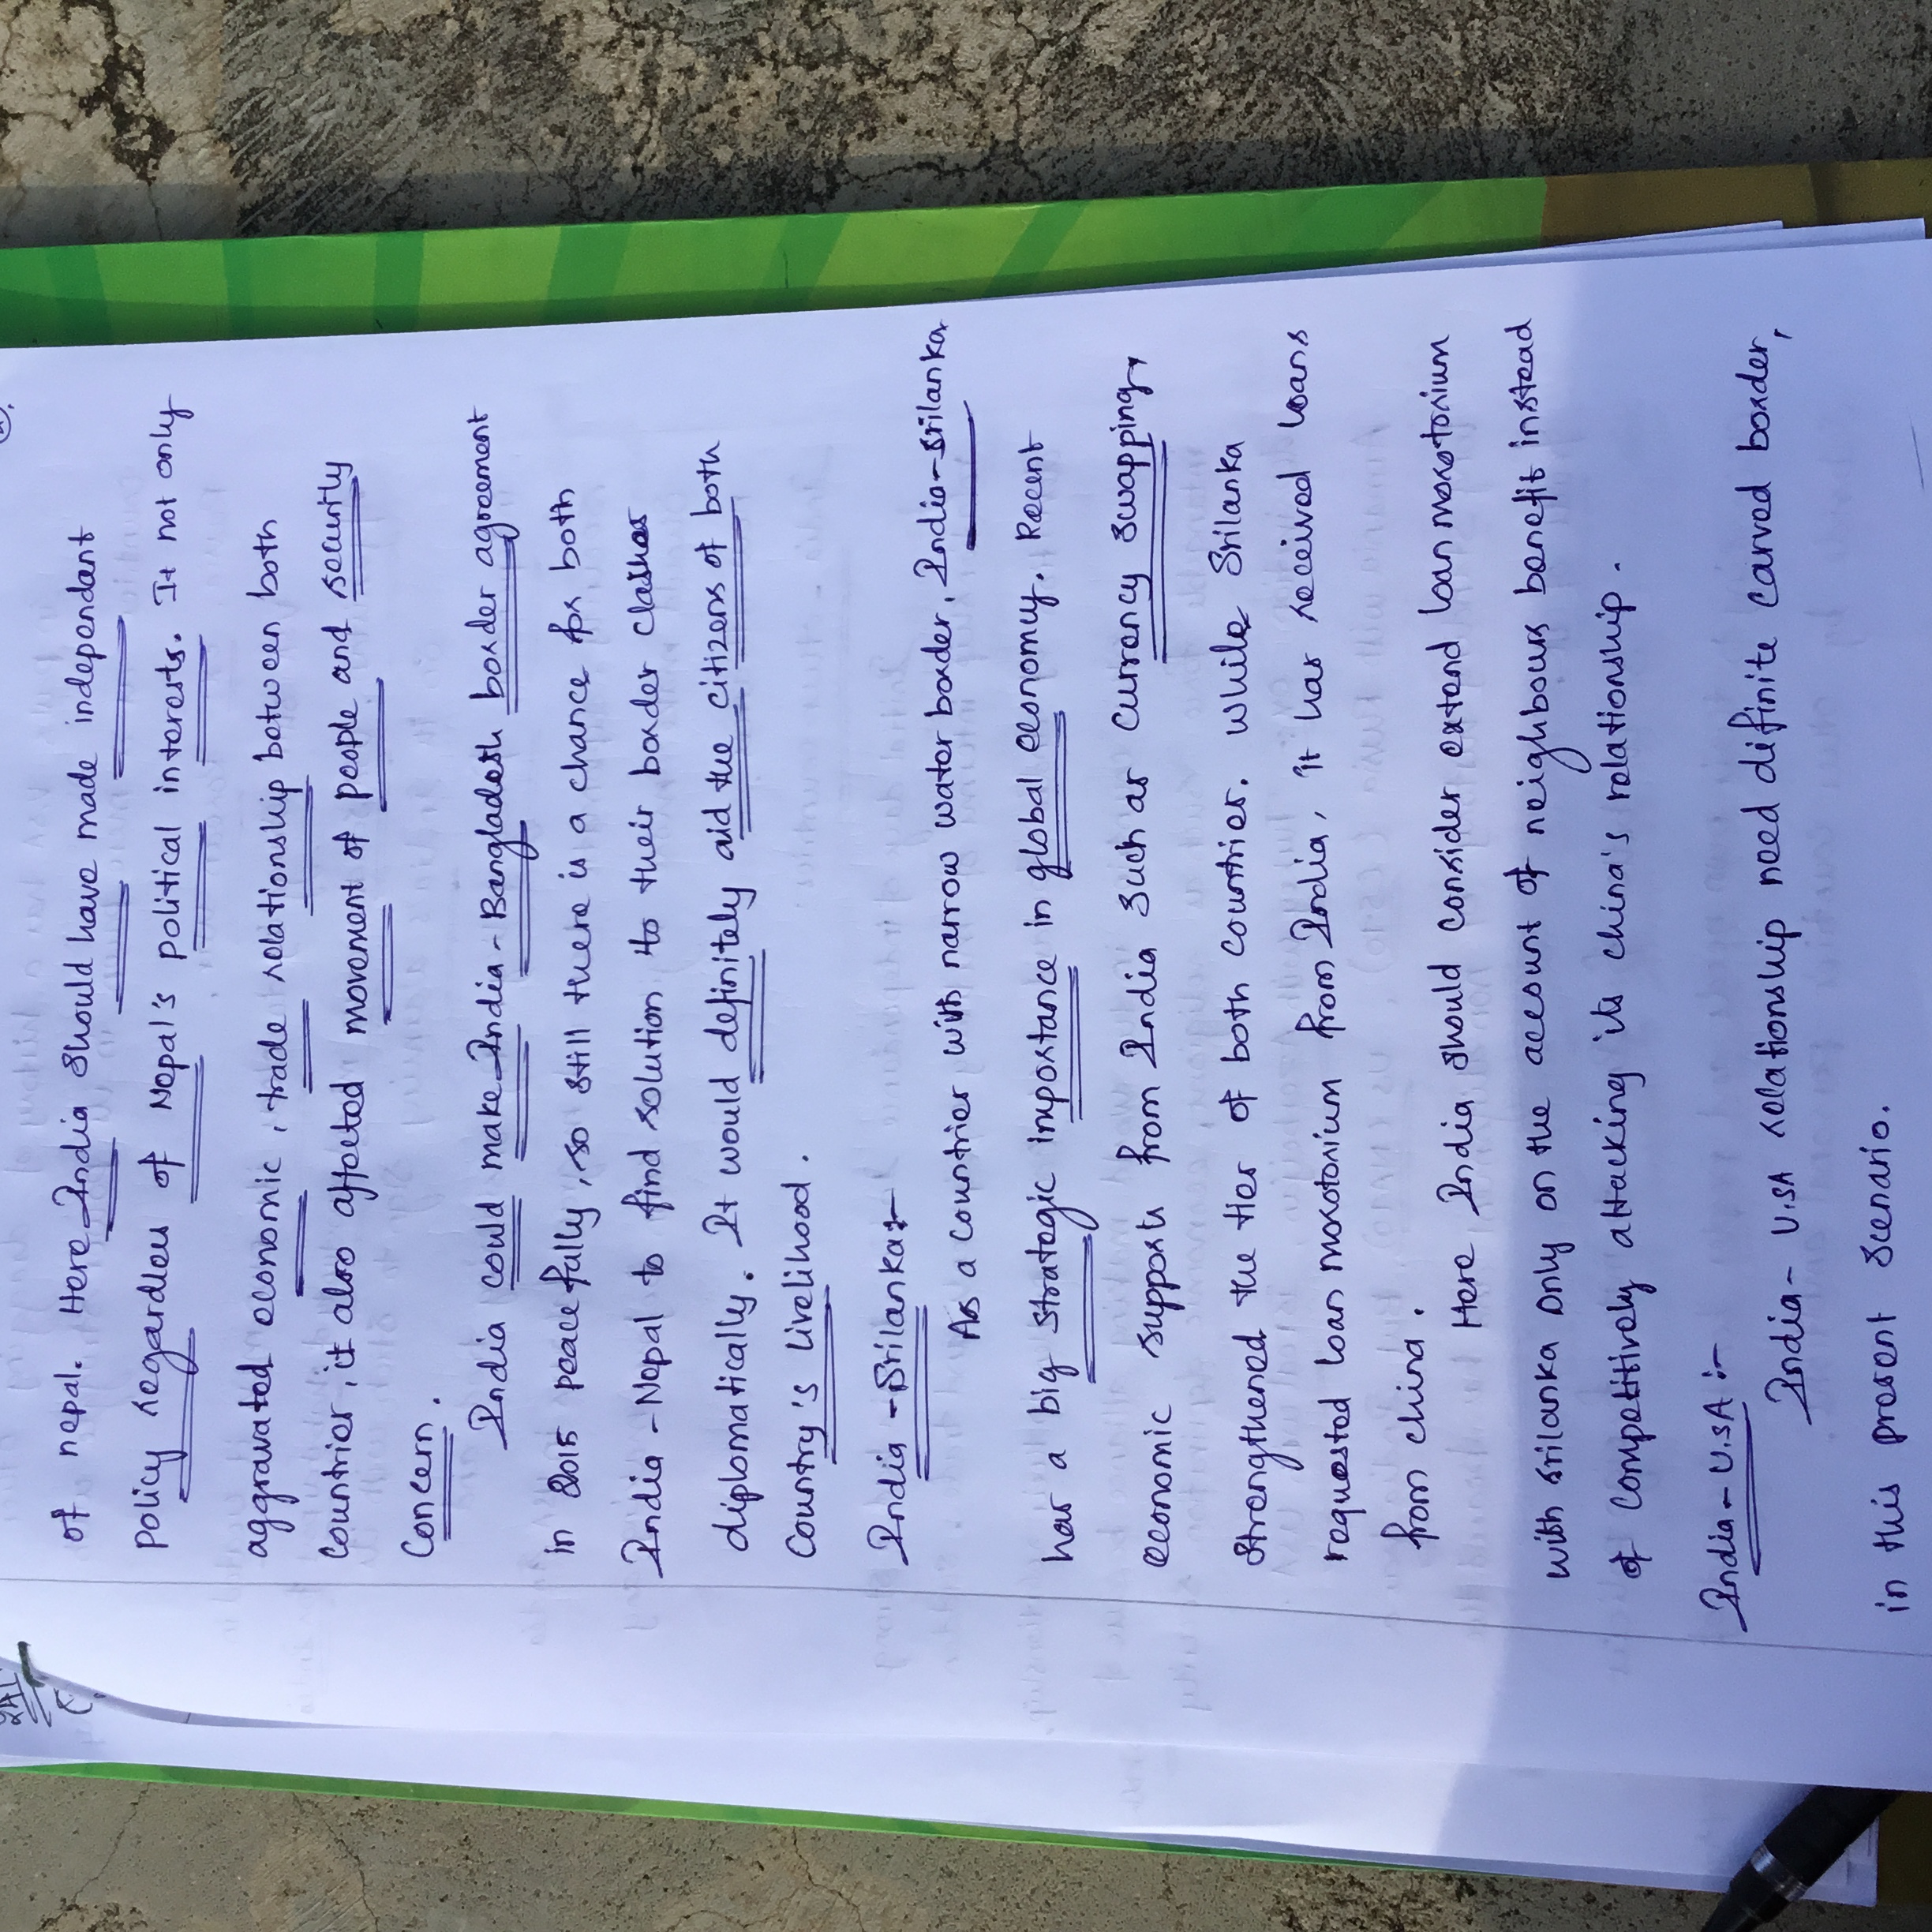 of nepal. Here India should have made independant
policy regardless of Nepal's political interests. It not only
aggravated economic, trade relationship between both
countries, it also affected movement of people and security
concern.
India could make India - Bangladesh border agreement
in 2015 peacefully, so still there is a chance for both
India - Nepal to find solution to their border clashes
diplomatically. It would definitely aid the citizens of both
country's livelihood.
India - Srilanka:-
As a countries with narrow water border, India - srilanka
has a big strategic importance in global economy. Recent
economic supports from India such as currency swapping,
strengthened the ties of both countries. while Srilanka
requested loan moratorium from India, it has received loans
from china.
Here India should consider extend loan moratorium
with srilanka only on the account of neighbours benefit instead
of competitively attacking its china's relationship.
India - U.SA :-
India - U.SA relationship need definite carved border,
in this present scenario.